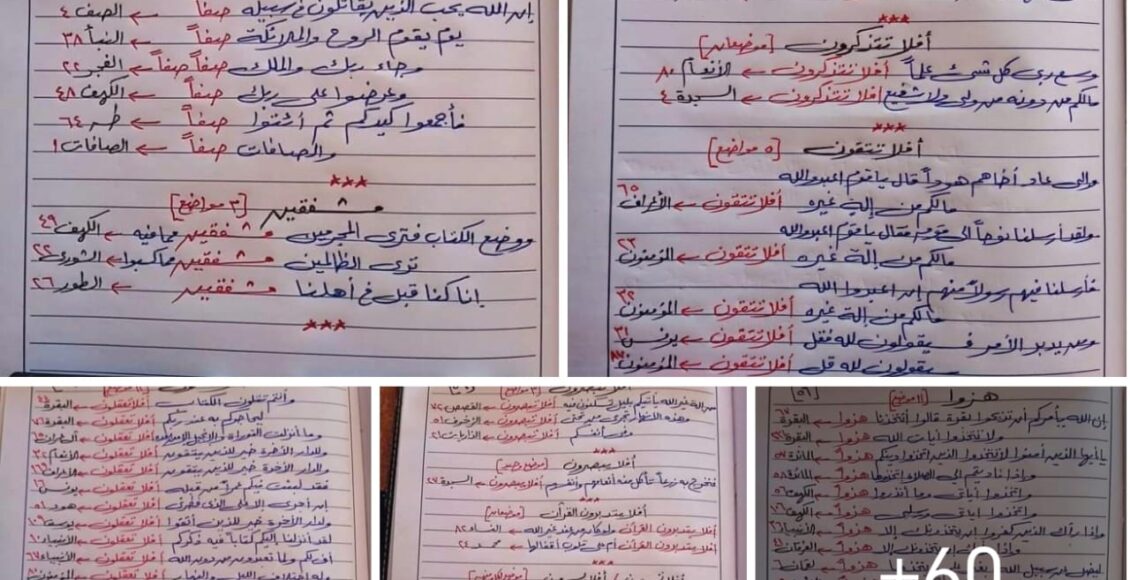 إن الله يحب الذين يقاتلون في سبيله صفاً ← الصف ٤
يوم يقوم الروح والملائكة صفاً ← النبأ ٣٨
وجاء ربك والملك صفاً صفاً ← الفجر ٢٢
وعرضوا على ربك صفاً ← الكهف ٤٨
فأجمعوا كيدكم ثم ائتوا صفاً ← طه ٦٤
والصافات صفاً ← الصافات ١
***
مشفقين [٣ مواضع]
ووضع الكتاب فترى المجرمين مشفقين مما فيه ← الكهف ٤٩
ترى الظالمين مشفقين مما كسبوا ← الشورى ٢٢
إنا كنا قبل في أهلنا مشفقين ← الطور ٢٦
***
***
أفلا تتذكرون [موضعان]
وسع ربي كل شيء علماً أفلا تتذكرون ← الأنعام ٨٠
مالكم من دونه من ولي ولا شفيع أفلا تتذكرون ← السجدة ٤
***
أفلا تتقون [٥ مواضع]
وإلى عاد أخاهم هوداً قال يا قوم اعبدوا الله
مالكم من إله غيره أفلا تتقون ← الأعراف ٦٥
ولقد أرسلنا نوحاً إلى قومه فقال يا قوم اعبدوا الله
مالكم من إله غيره أفلا تتقون ← المؤمنون ٢٣
فأرسلنا فيهم رسولاً منهم إن اعبدوا الله
مالكم من إله غيره أفلا تتقون ← المؤمنون ٣٢
ومن يدبر الأمر فسيقولون الله فقل أفلا تتقون ← يونس ٣١
سيقولون لله قل أفلا تتقون ← المؤمنون ٨٧
وأنتم تتلون الكتاب أفلا تعقلون ← البقرة ٤٤
ليحاجوكم به عند ربكم أفلا تعقلون ← البقرة ٧٦
وما أنزلت التوراة والإنجيل إلا من بعده أفلا تعقلون ← آل عمران ٦٥
وللدار الآخرة خير للذين يتقون أفلا تعقلون ← الأنعام ٣٢
والدار الآخرة خير للذين يتقون أفلا تعقلون ← الأعراف ١٦٩
فقد لبثت فيكم عمراً من قبله أفلا تعقلون ← يونس ١٦
إن أجري إلا على الذي فطرني أفلا تعقلون ← هود ٥١
ولدار الآخرة خير للذين اتقوا أفلا تعقلون ← يوسف ١٠٩
لقد أنزلنا إليكم كتاباً فيه ذكركم أفلا تعقلون ← الأنبياء ١٠
أف لكم ولما تعبدون من دون الله أفلا تعقلون ← الأنبياء ٦٧
وله اختلاف الليل والنهار أفلا تعقلون ← المؤمنون ٨٠
من إله غير الله يأتيكم بليل تسكنون فيه أفلا تبصرون ← القصص ٧٢
وهذه الأنهار تجري من تحتي أفلا تبصرون ← الزخرف ٥١
وفي أنفسكم أفلا تبصرون ← الذاريات ٢١
***
أفلا يبصرون [موضع وحيد]
فنخرج به زرعاً تأكل منه أنعامهم وأنفسهم أفلا يبصرون ← السجدة ٢٧
***
أفلا يتدبرون القرآن [موضعان]
أفلا يتدبرون القرآن ولو كان من عند غير الله ← النساء ٨٢
أفلا يتدبرون القرآن أم على قلوب أقفالها ← محمد ٢٤
***
هزوا [١١ موضع]
إن الله يأمركم أن تذبحوا بقرة قالوا أتتخذنا هزوا ← البقرة ٦٧
ولا تتخذوا آيات الله هزوا ← البقرة ٢٣١
يا أيها الذين آمنوا لا تتخذوا الذين اتخذوا دينكم هزوا ← المائدة ٥٧
وإذا ناديتم إلى الصلاة اتخذوها هزوا ← المائدة ٥٨
واتخذوا آياتي وما أنذروا هزوا ← الكهف ٥٦
واتخذوا آياتي ورسلي هزوا ← الكهف ١٠٦
وإذا رآك الذين كفروا إن يتخذونك إلا هزوا ← الأنبياء ٣٦
وإذا رأوك إن يتخذونك إلا هزوا ← الفرقان ٤١
ليضل عن سبيل الله هزوا ← لقمان ٦
+60